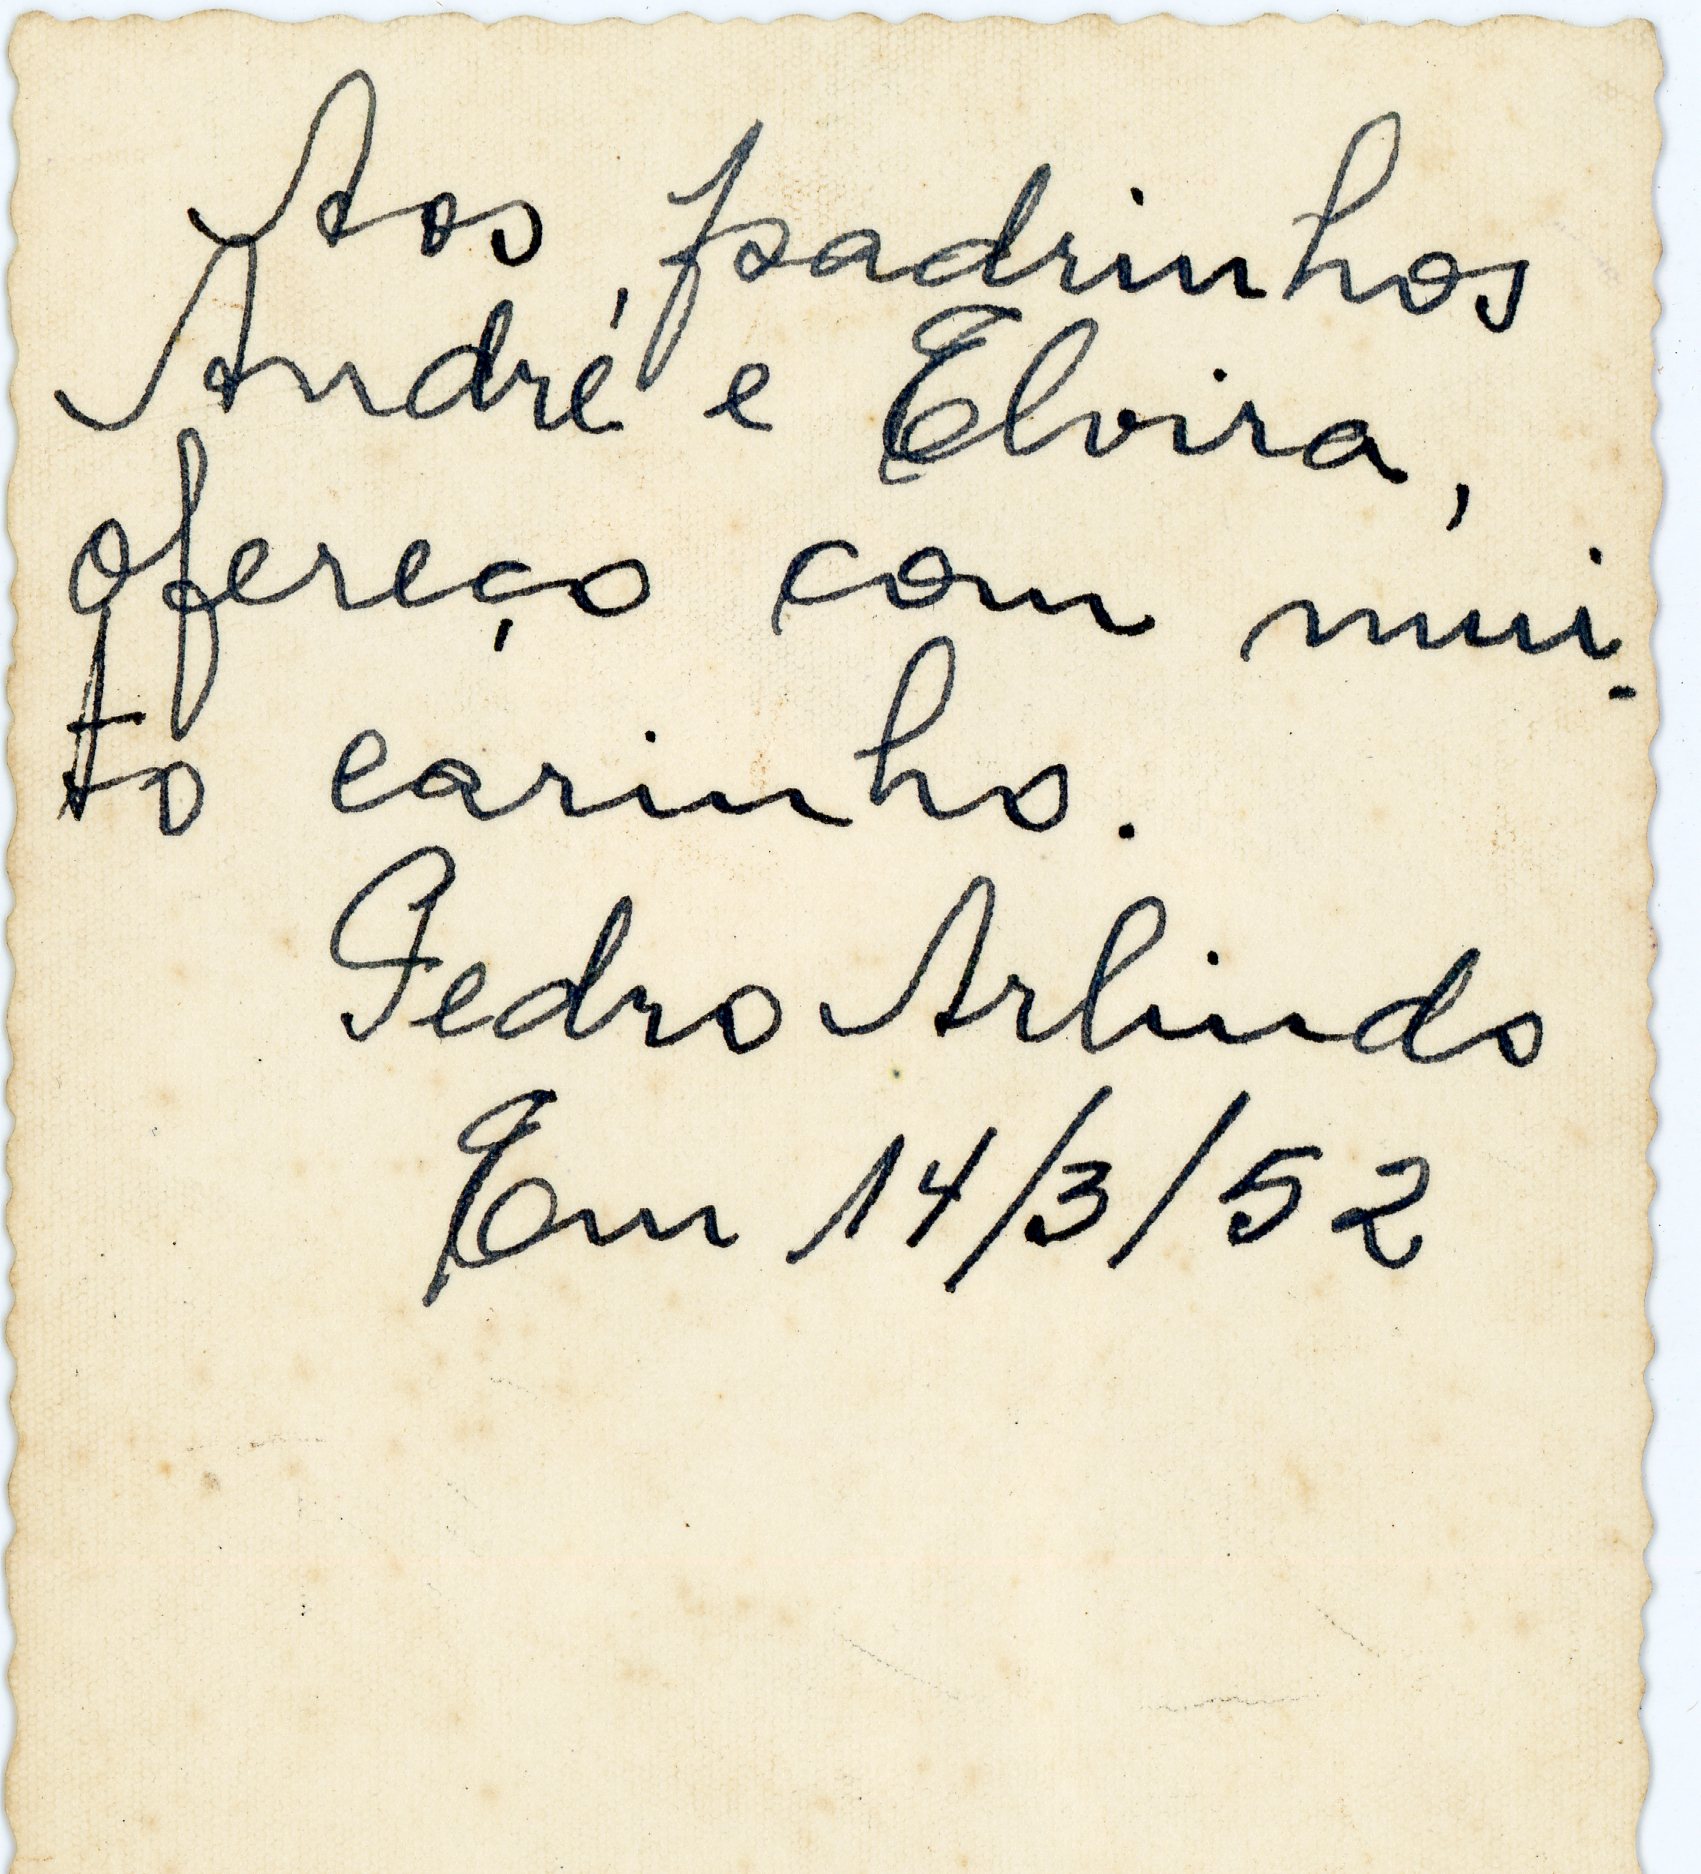 Aos padrinhos
André e Elvira,
ofereço com mui-
to carinho.
Pedro Arlindo
Em 14/3/52